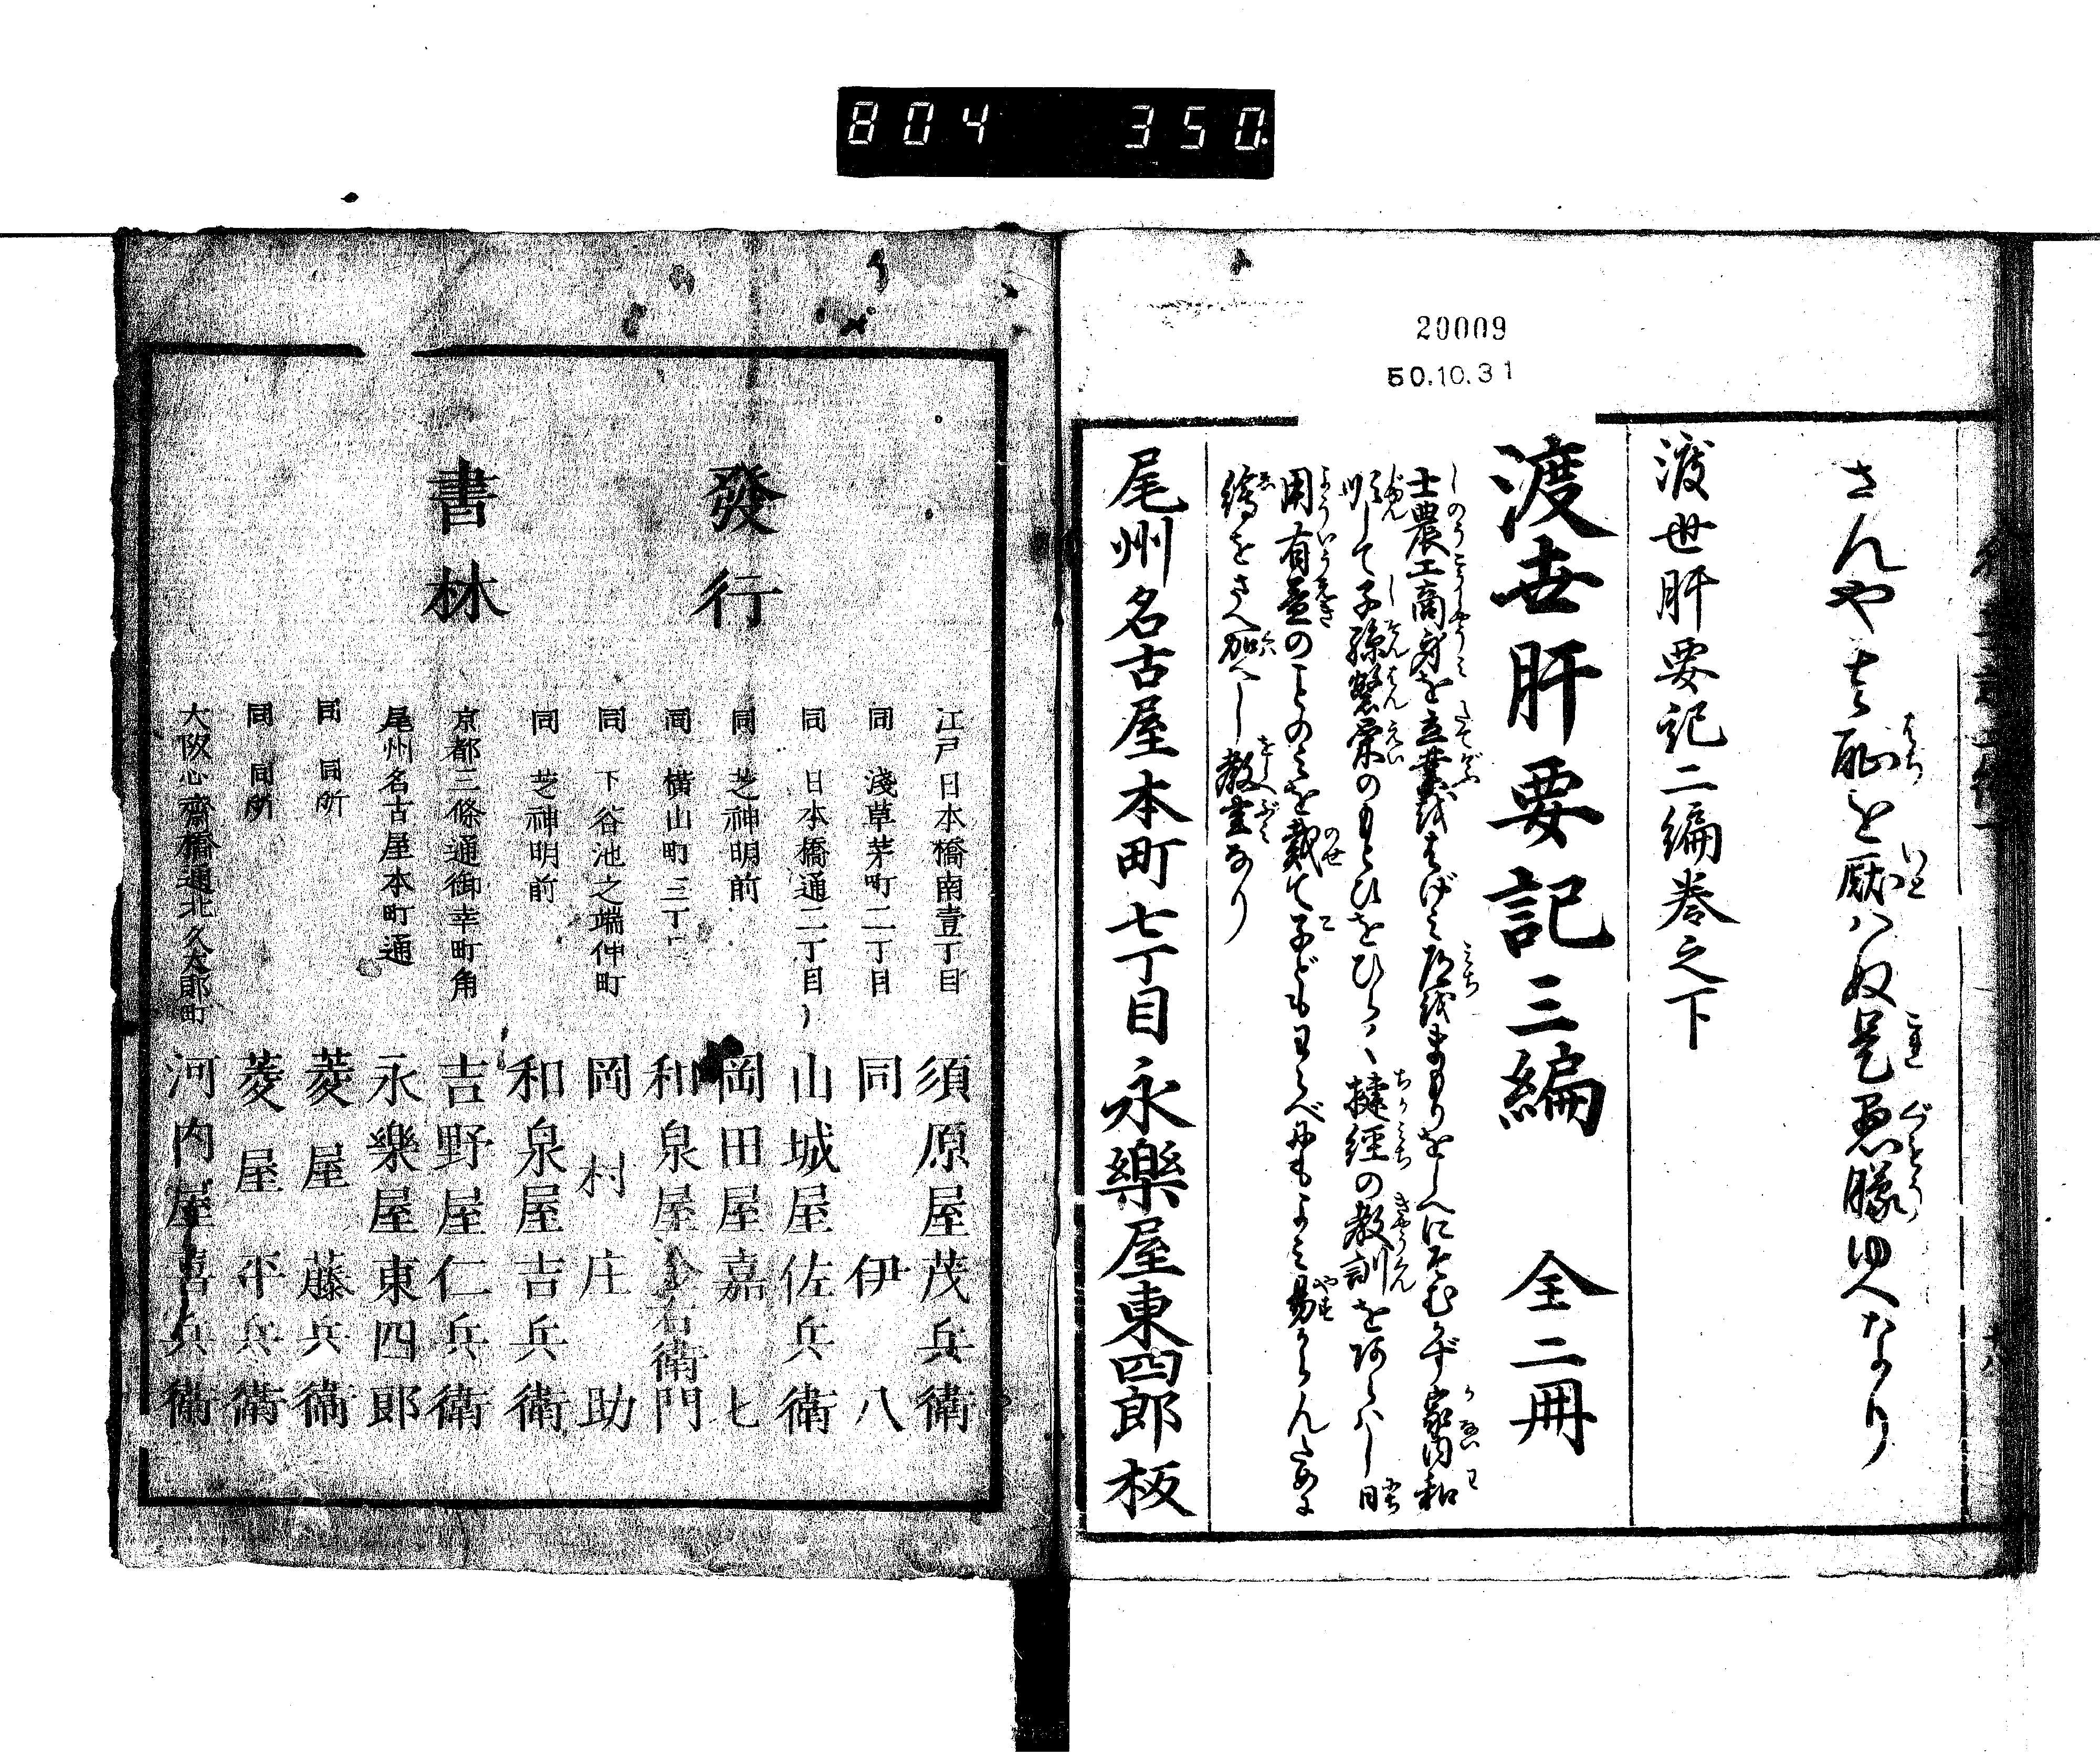 804 350
20009
50.10.31
さんや夫ら恥を厭はぬ是愚朦ゆへなり
渡世肝要記二編巻之下
渡世肝要記三編 全二冊
士農工商身を立業をはげみ道をまもりをしへにそむかず家内和
順して子孫繁栄の
の教訓を
用有益のことのみを載て子どもわらべにもよみ易からんために
繪をさへ加へし教書なり
尾州名古屋本町七丁目永樂屋東四郎板
發行
書林
江戸日本橋南壹丁目 須原屋茂兵衞
同 淺草茅町二丁目 同 伊八
同 日本橋通二丁目 山城屋佐兵衞
同 芝神明前 岡田屋嘉七
同 横山町三丁 和泉屋金右衞門
同 下谷池之端仲町 岡村庄助
同 芝神明前 和泉屋吉兵衞
京都三條通御幸町角 吉野屋仁兵衞
尾州名古屋本町通 永樂屋東四郎
同 同所 菱屋藤兵衞
同 同所 菱屋平兵衞
大阪心齋橋通北久太郎町 河内屋喜兵衞